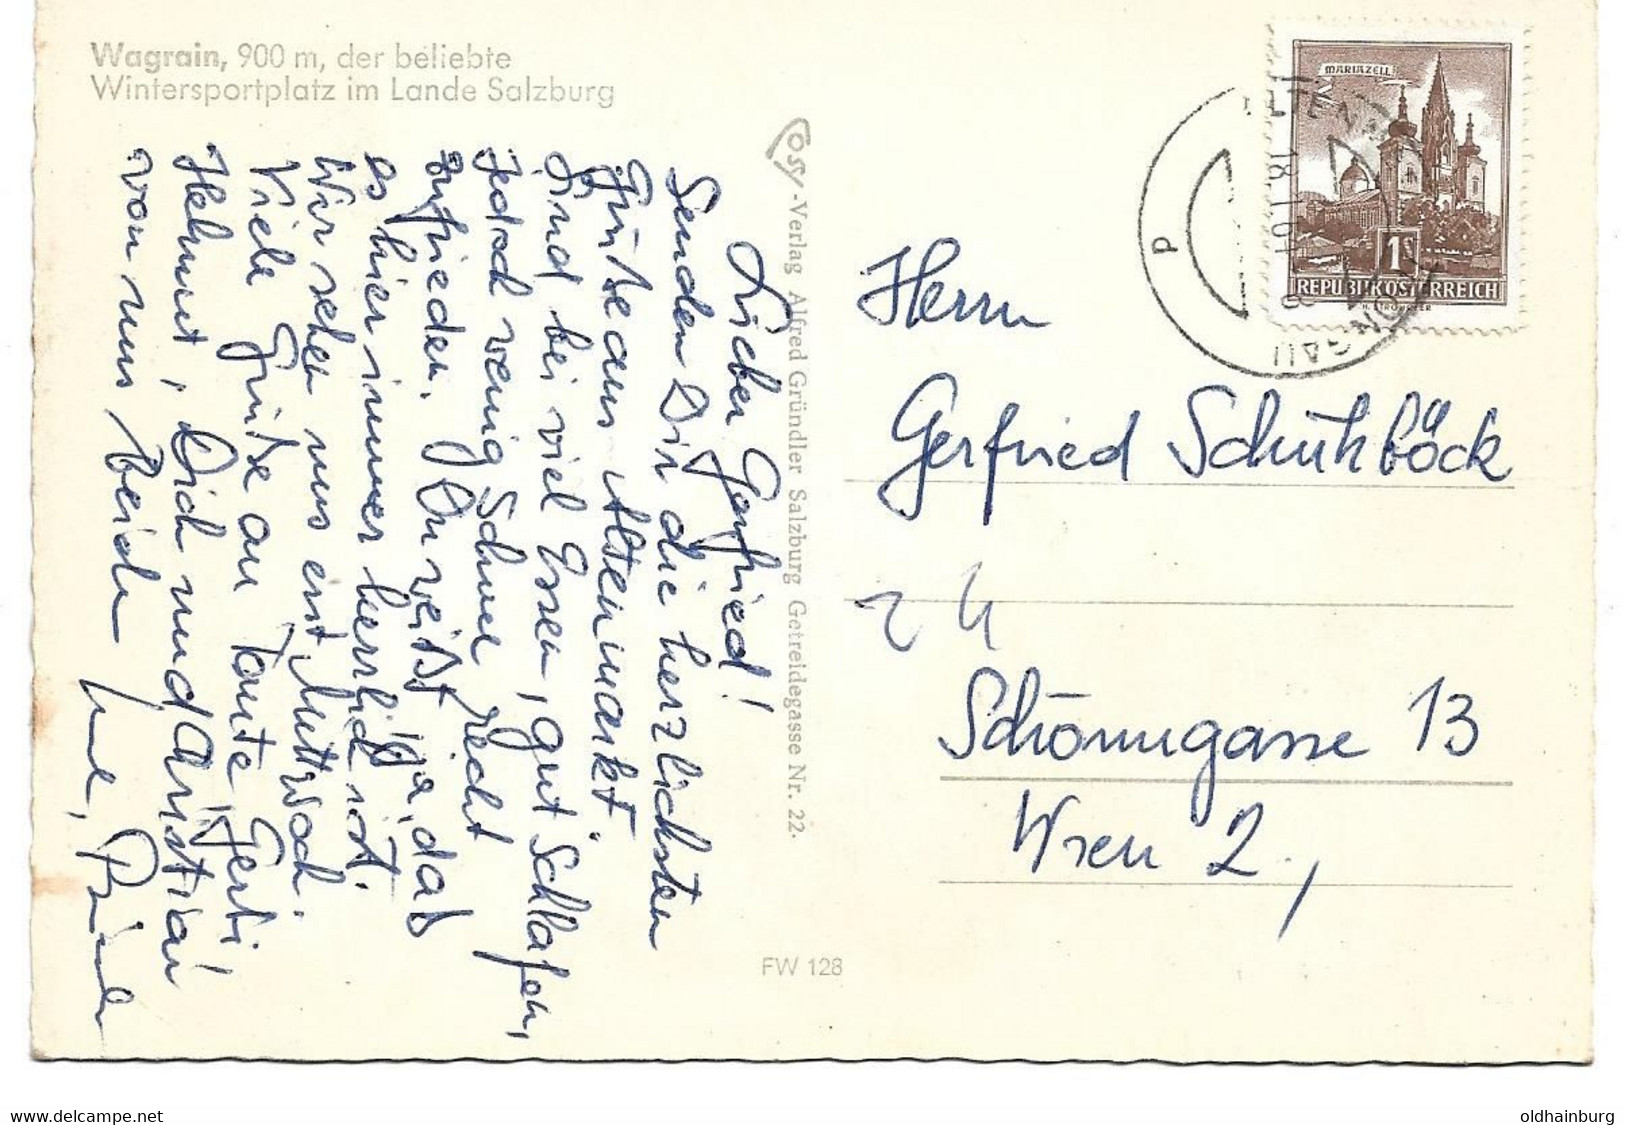 Wagrain, 900 m, der beliebte
Wintersportplatz im Lande Salzburg
Lieber Gerfried!
Senden Dir die herzlichsten
Grüße aus Altenmarkt.
Sind bei viel Essen, gut Schlafen,
jedoch wenig Schnee recht
zufrieden. Du weißt ja, daß
es hier immer herrlich ist.
Wir sehen uns erst Mittwoch.
Viele Grüße an Tante Gerti,
Helmut, Dich und Christian
von uns beiden
Cosy-Verlag Alfred Gründler Salzburg Getreidegasse Nr. 22.
FW 128
MARIAZELL
1S
REPUBLIK ÖSTERREICH
ALTENMARKT PONGAU
18. 1. 61
P
Herrn
Gerfried Schuhböck
Schönngasse 13
Wien 2.,
www.delcampe.net
oldhainburg